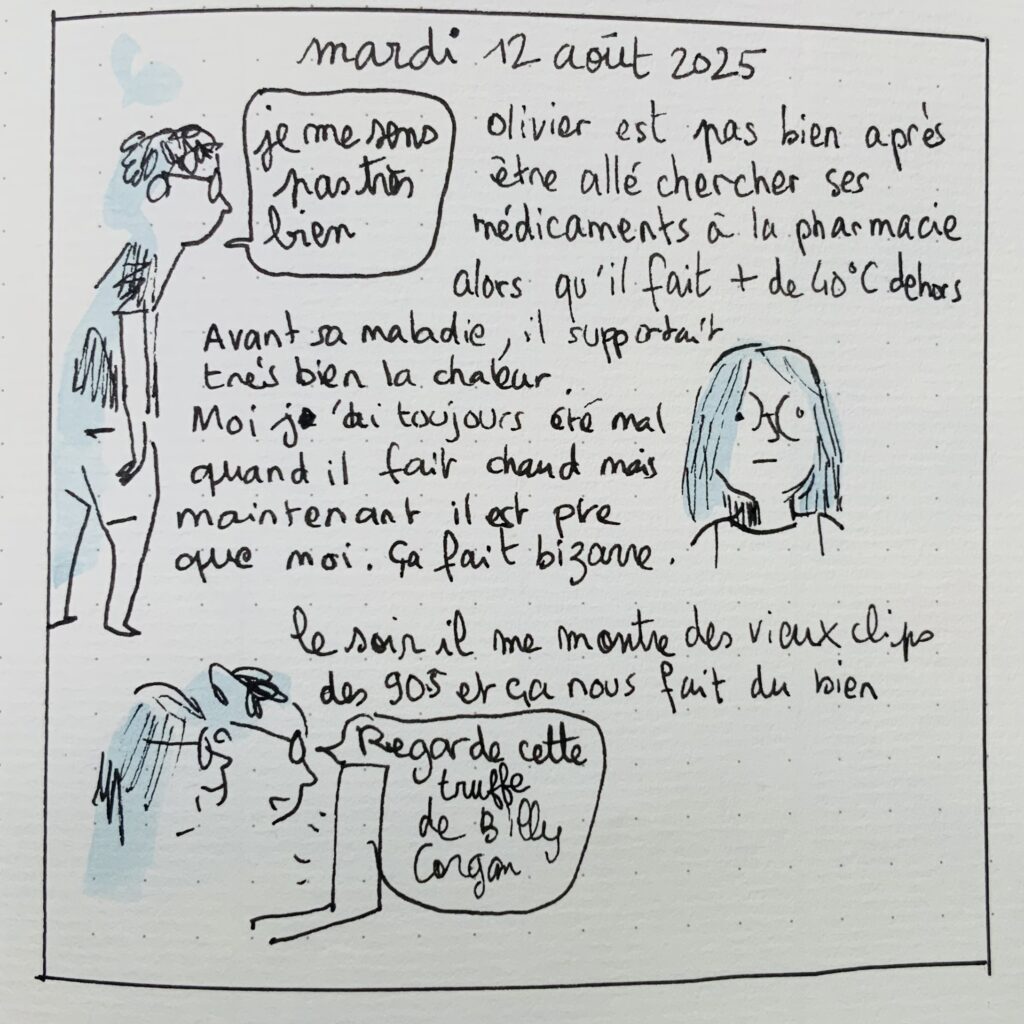 mardi 12 août 2025
je me sens
pas très
bien
Olivier est pas bien après
être allé chercher ses
médicaments à la pharmacie
alors qu'il fait + de 40°C dehors
Avant sa maladie, il supportait
très bien la chaleur.
Moi j'ai toujours été mal
quand il fait chaud mais
maintenant il est pire
que moi. Ça fait bizarre.
le soir il me montre des vieux clips
des 90s et ça nous fait du bien
Regarde cette
truffe
de Billy
Corgan